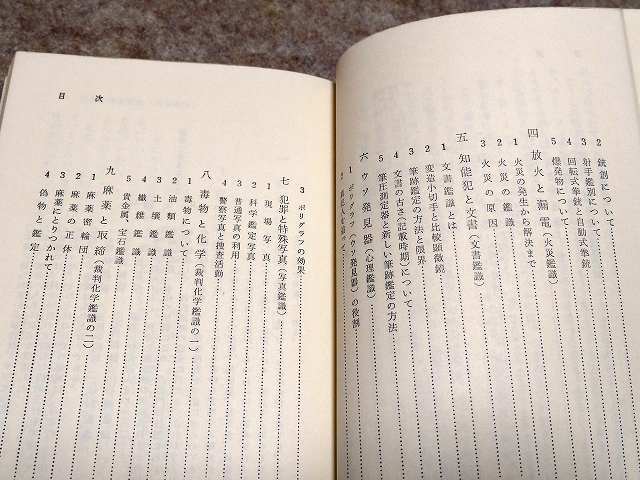 2 銃創について
3 射手鑑別について
4 回転式拳銃と自動式拳銃
5 爆発物について
四 放火と漏電(火災鑑識)
1 火災の発生から解決まで
2 火災の鑑識
3 火災の原因
五 知能犯と文書(文書鑑識)
1 文書鑑識とは
2 変造小切手と比較顕微鏡
3 筆跡鑑定の方法と限界
4 文書の古さ(記載時期)について
5 筆圧測定器と新しい筆跡鑑定の方法
六 ウソ発見器(心理鑑識)
1 ポリグラフ(ウソ発見器)の役割
2 真犯人を追って
3 ポリグラフの効果
七 犯罪と特殊写真(写真鑑識)
1 現場写真
2 科学鑑定写真
3 普通写真の利用
4 警察写真と捜査活動
八 毒物と化学(裁判化学鑑識の一)
1 毒物について
2 油類鑑識
3 土壌鑑識
4 繊維鑑識
5 貴金属、宝石鑑識
九 麻薬と取締(裁判化学鑑識の二)
1 麻薬密輸団
2 麻薬の正体
3 麻薬にとりつかれて
4 偽物と鑑定
目次